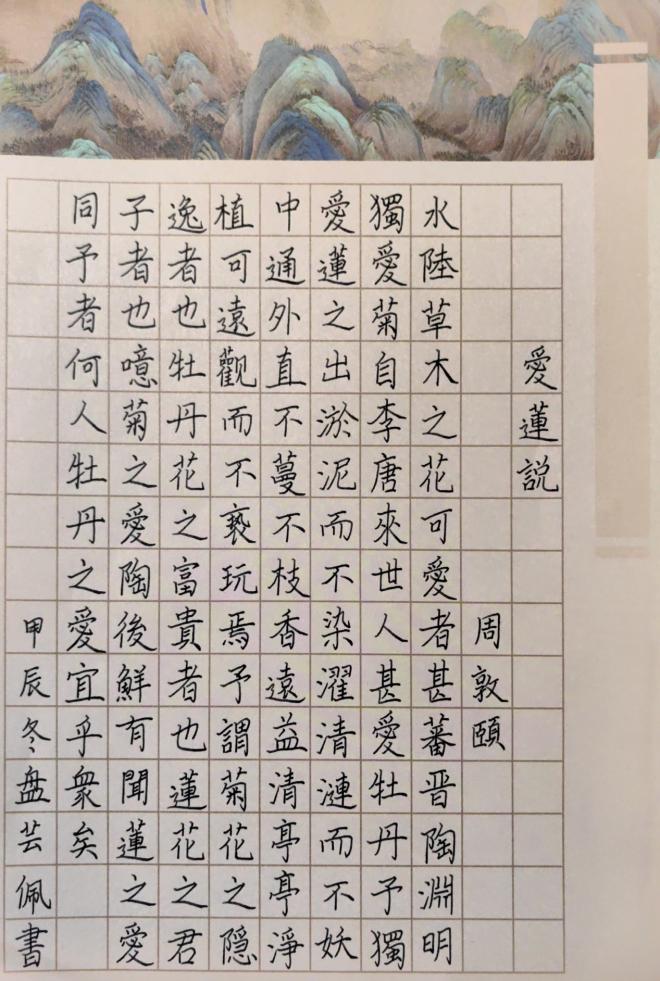 愛蓮説
周敦頤
水陸草木之花可愛者甚蕃晋陶淵明
獨愛菊自李唐來世人甚愛牡丹予獨
愛蓮之出淤泥而不染濯清漣而不妖
中通外直不蔓不枝香遠益清亭亭淨
植可遠觀而不褻玩焉予謂菊花之隠
逸者也牡丹花之富貴者也蓮花之君
子者也噫菊之愛陶後鮮有聞蓮之愛
同予者何人牡丹之愛宜乎衆矣
甲辰冬盘芸佩書